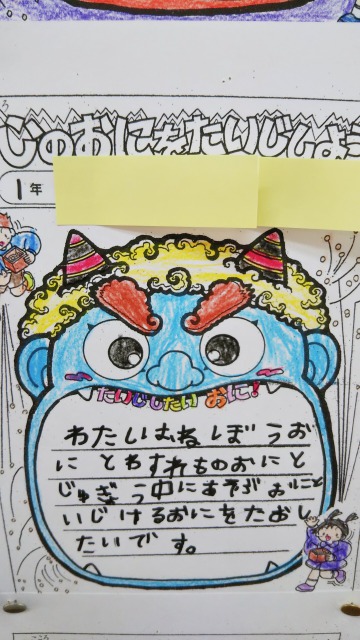 じのおにをたいじしよう
1年
たいじしたい おに!
わたしはねぼうお
にとわすれものおにと
じゅぎょう中にあそぶおにと
いじけるおにをたおし
たいです。